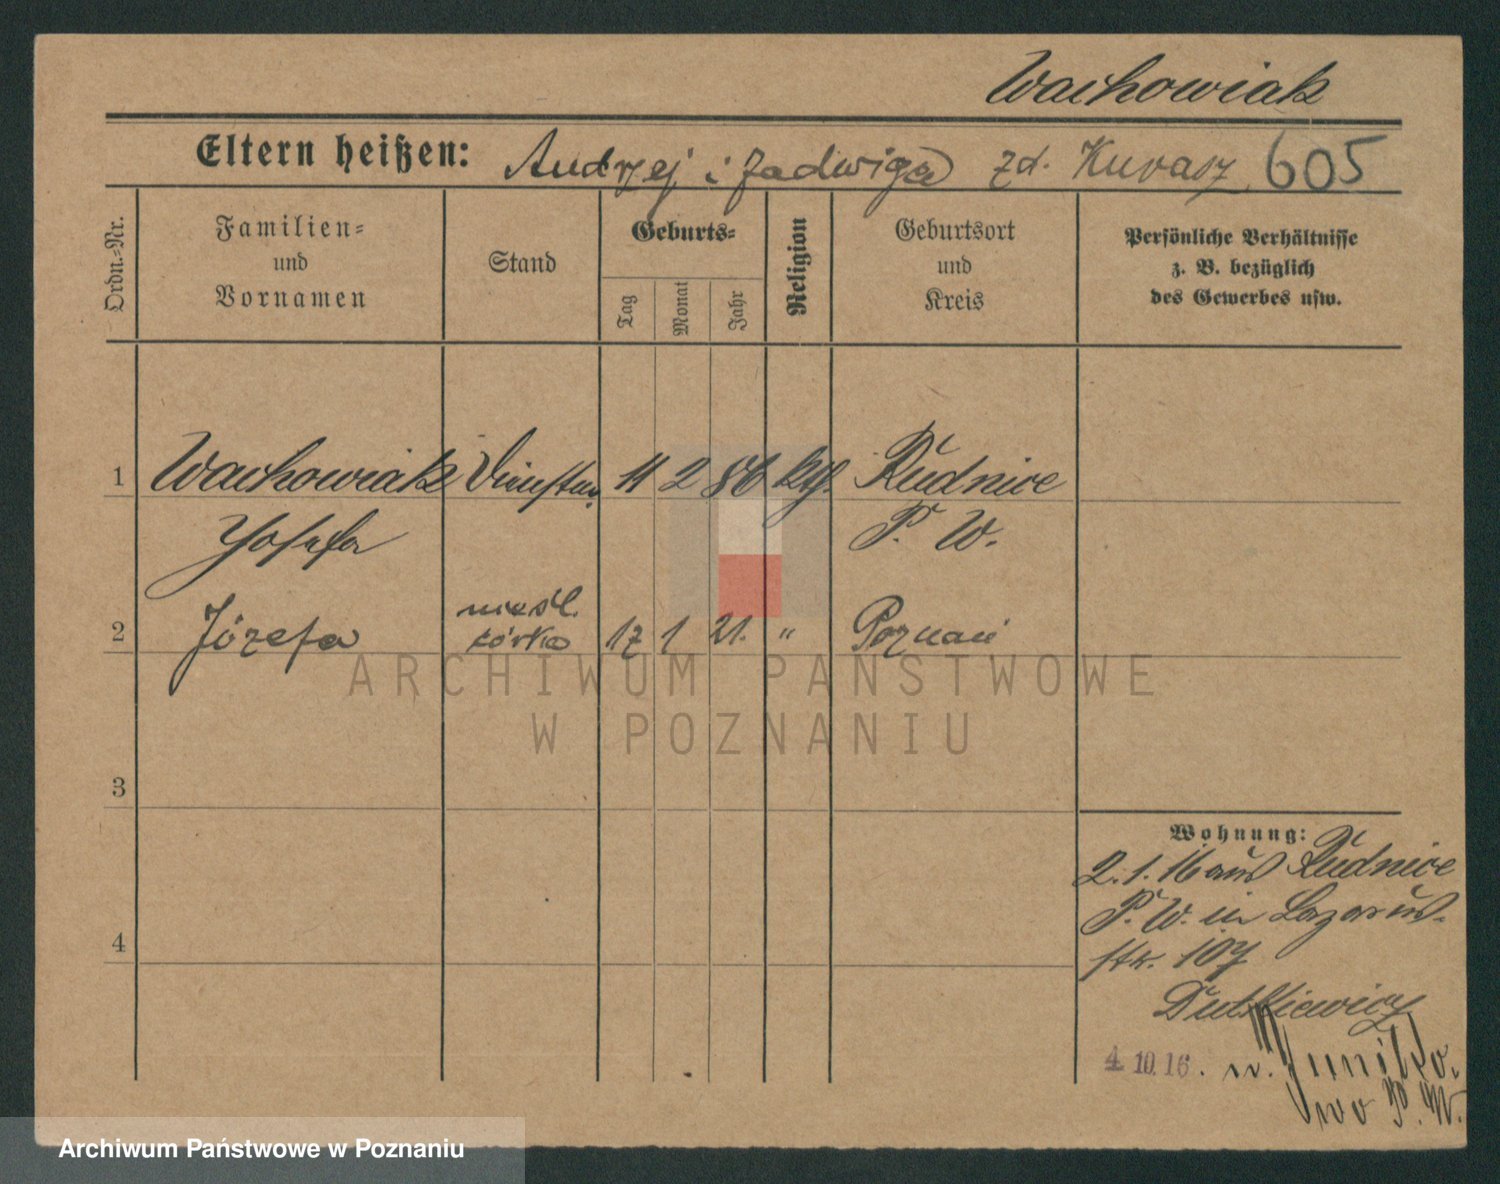 Wachowiak
Eltern heißen: Andrzej i Jadwiga zd. Kurasz 605
Ordn.-Nr.
Familien-
und
Vornamen
Stand
Geburts-
Tag
Monat
Jahr
Religion
Geburtsort
und
Kreis
Persönliche Verhältnisse
z. B. bezüglich
des Gewerbes usw.
1 Wachowiak 11 2 86 kth. Rudnice
Josefa P. W.
nieśl.
2 Józefa córka 17 1 21. " Poznań
ARCHIWUM PAŃSTWOWE
W POZNANIU
3
Wohnung:
2. 1. 16 aus Rudnice
P. W. in Lazarus-
4
str. 107
Dutkiewicz
4. 10. 16. n. Juniko-
wo P. W.
Archiwum Państwowe w Poznaniu